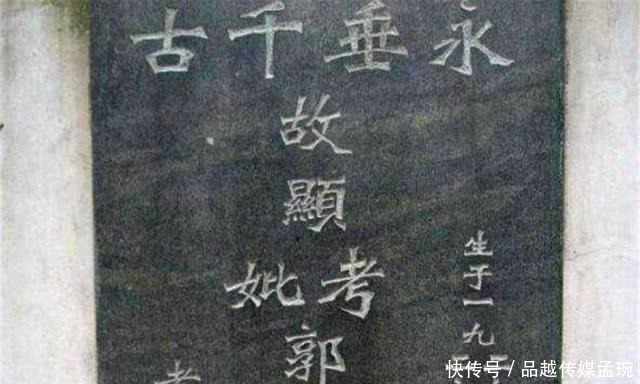 永垂千古
生于一九
故顯考妣郭
快传号 / 品越传媒孟琬